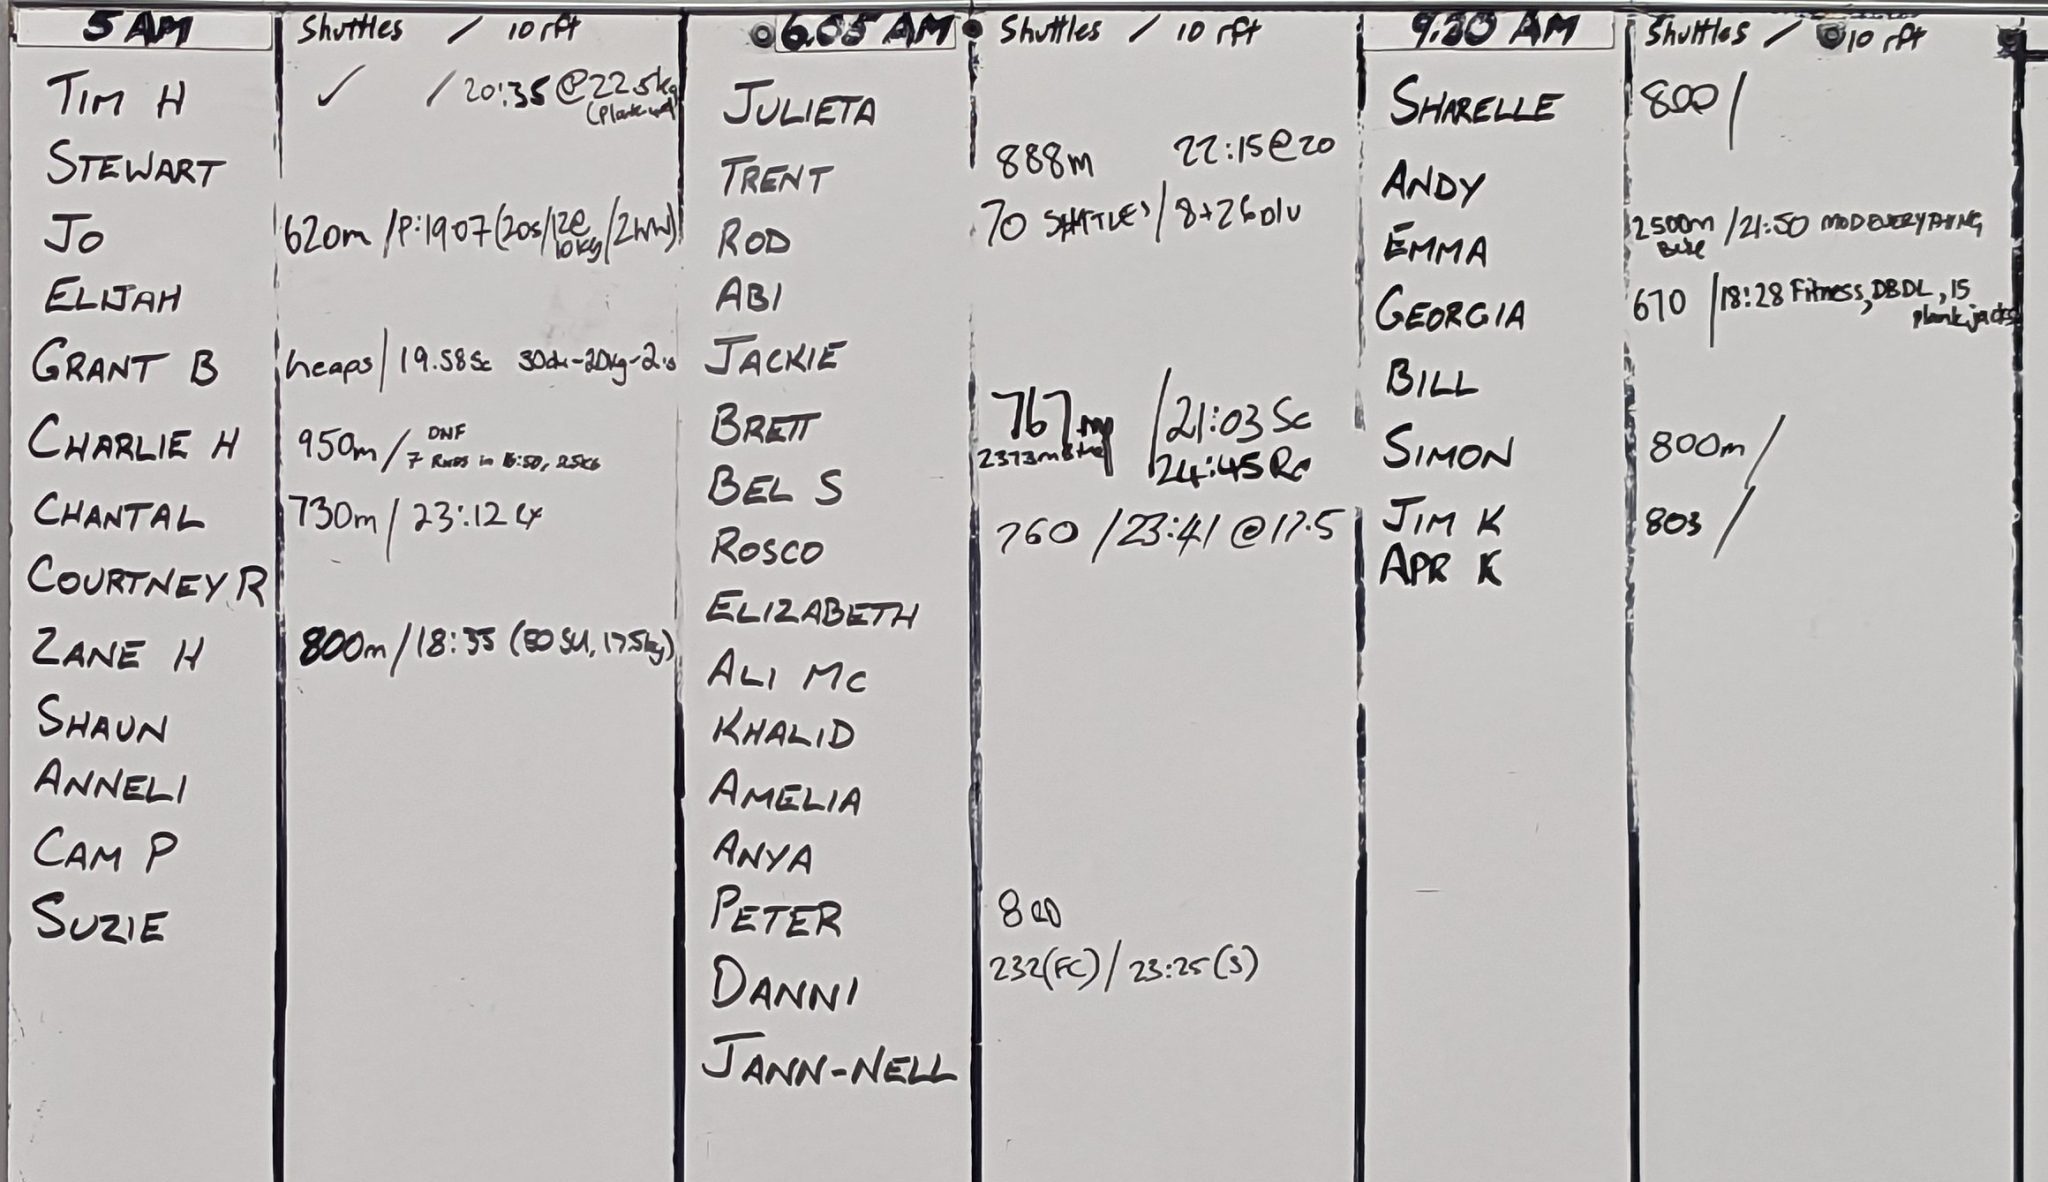 5 AM
Shuttles / 10 rft
TIM H ✓ / 20:35 @ 22.5kg
STEWART
JO 620m / P:1907 (20s/12@ 10kg/2WW)
ELIJAH
GRANT B heaps / 19.58 Sc 30du-20kg-
CHARLIE H 950m / DNF
7 in 25kg
CHANTAL 730m / 23:12
COURTNEY R
ZANE H 800m / 18:35 (50 SU, 17.5kg)
SHAUN
ANNELI
CAM P
SUZIE
6.05 AM
Shuttles / 10 rft
JULIETA
TRENT 888m 22:15 @ 20
ROD 70 / 8+26 DIU
ABI
JACKIE
BRETT 767m / 21:03 Sc
BEL S 2373m / 24:45
ROSCO 760 / 23:41 @ 17.5
ELIZABETH
ALI MC
KHALID
AMELIA
ANYA
PETER 800
DANNI 232(FC) / 23:25 (S)
JANN-NELL
9.30 AM
Shuttles / 10 rft
SHARELLE 800 /
ANDY
EMMA 2500m / 21:50 MOD EVERYTHING
GEORGIA 670 / 18:28 Fitness, DBDL, 15
plank jacks
BILL
SIMON 800m /
JIM K 803 /
APR K